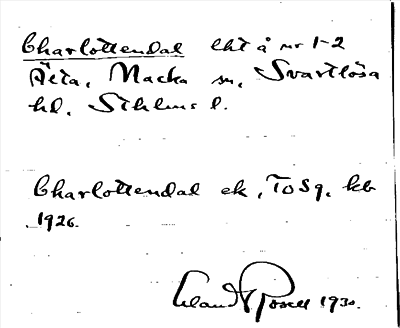 Charlottendal lht å nr 1-2
Älta, Nacka sn, Svartlösa
hd, Sthlms l.
Charlottendal ek, To Sg. kb
1926.
1930.